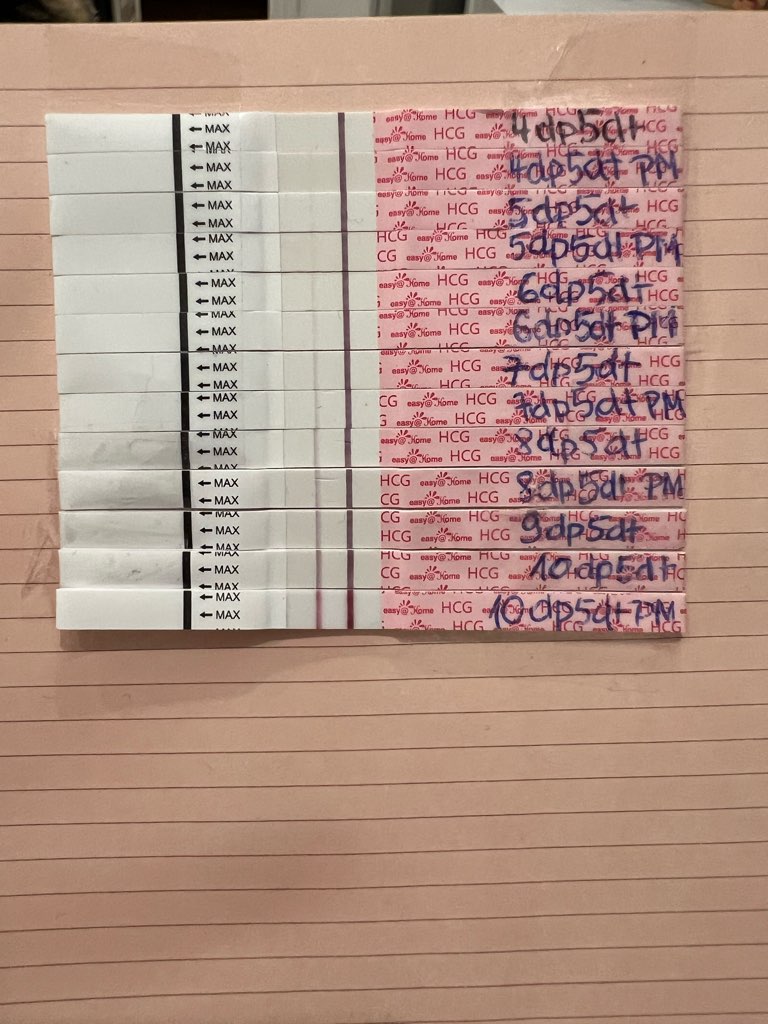 ← MAX easy@Home HCG 4dp5dt
← MAX easy@Home HCG 4dp5dt PM
← MAX easy@Home HCG 5dp5dt
← MAX HCG easy@Home 5dp5dt PM
← MAX easy@Home HCG 6dp5dt
← MAX easy@Home HCG 6dp5dt PM
← MAX easy@Home HCG 7dp5dt HCG
← MAX easy@Home HCG 7dp5dt PM
← MAX easy@Home HCG 8dp5dt HCG
← MAX HCG easy@Home 8dp5dt PM
← MAX HCG easy@Home 9dp5dt
← MAX easy@Home HCG 10dp5dt
← MAX easy@Home HCG 10dp5dt PM